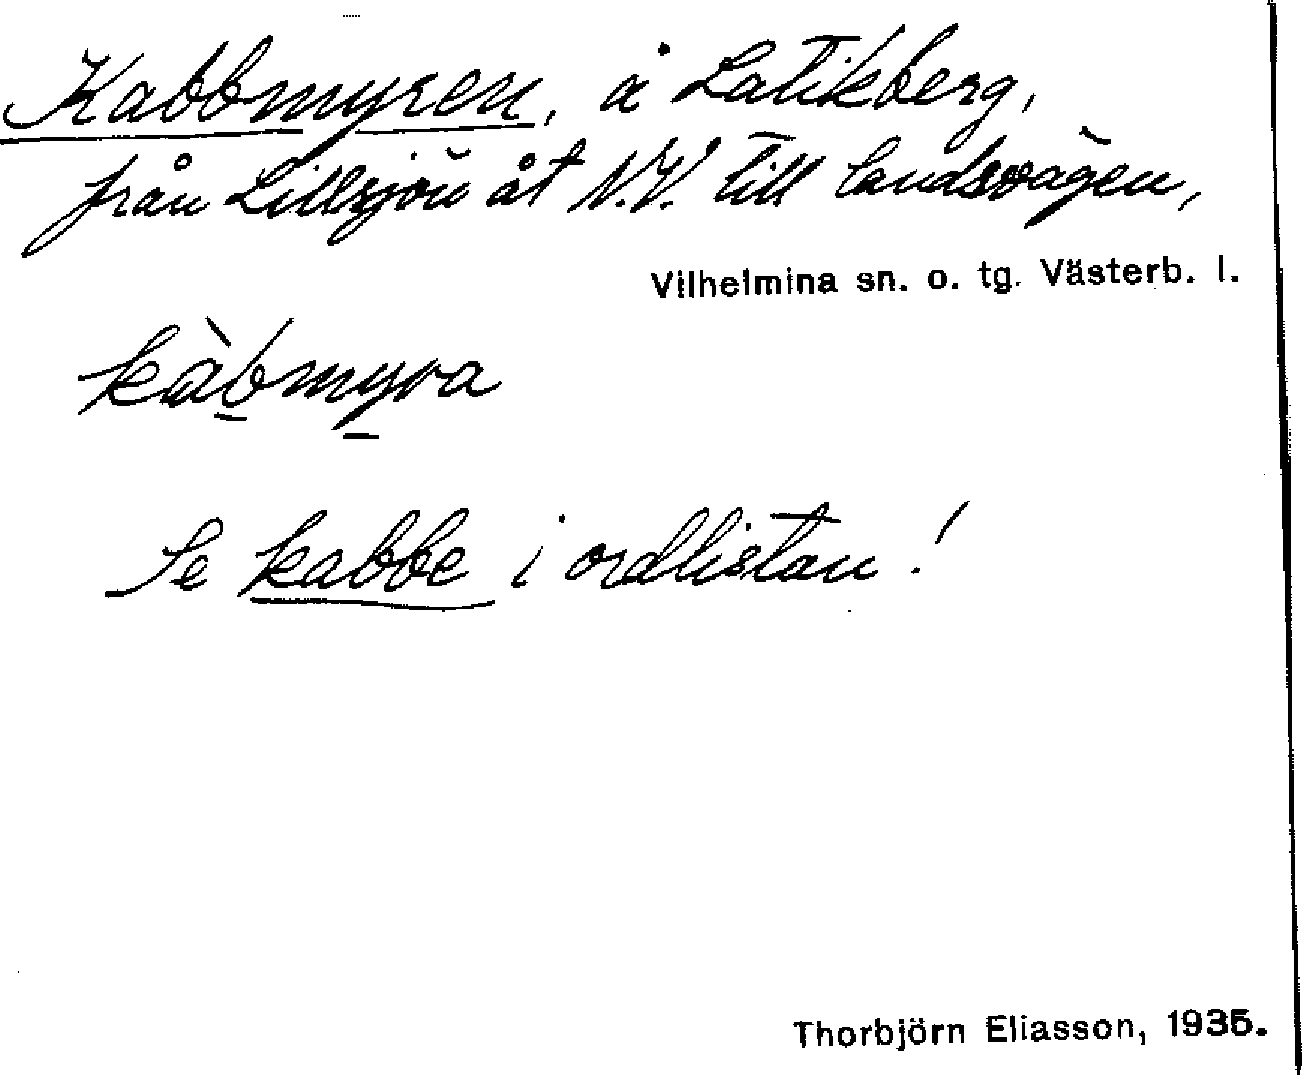 Kabbmyren, å Latikberg,
från Lillsjön åt N.V. till landsvägen,
Vilhelmina sn. o. tg. Västerb. l.
kàbmyra
Se kabbe i ordlistan!
Thorbjörn Eliasson, 1935.